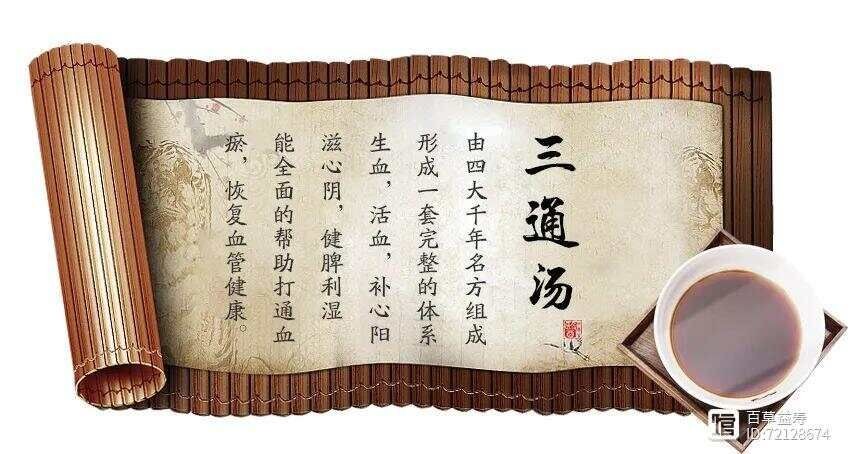 三通汤
由四大千年名方组成
形成一套完整的体系
生血，活血，补心阳
滋心阴，健脾利湿
能全面的帮助打通血
瘀，恢复血管健康。
百草益寿
ID:72128674